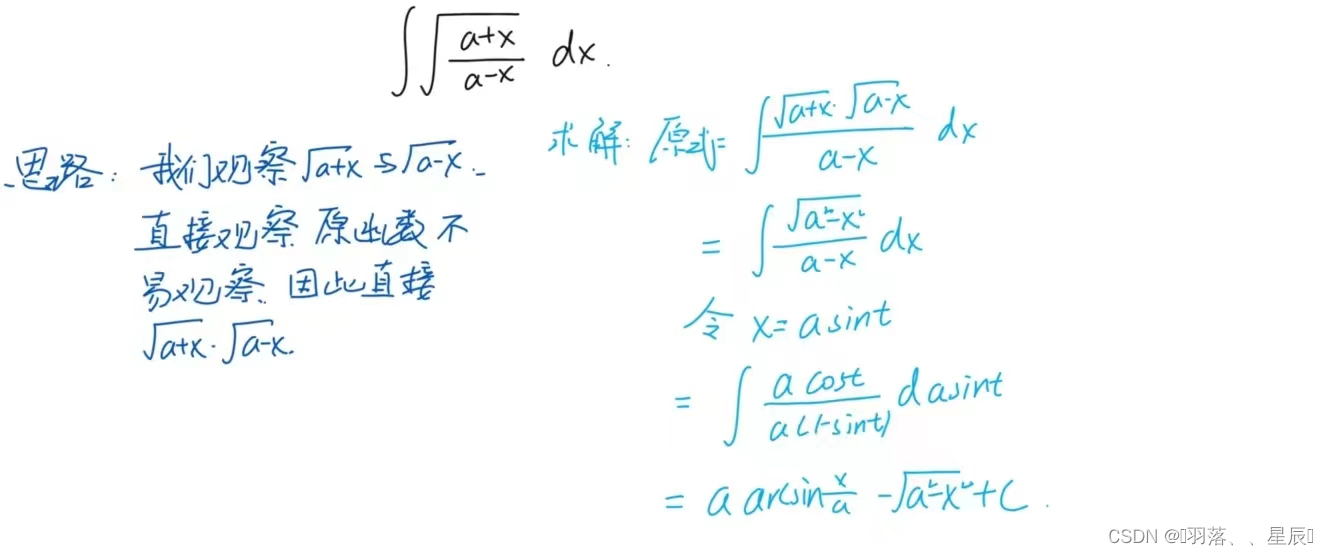 ∫√((a+x)/(a-x)) dx.
思路: 我们观察√(a+x)与√(a-x).
直接观察原函数不
易观察. 因此直接
√(a+x)·√(a-x).
求解: 原式=∫(√(a+x)·√(a-x))/(a-x) dx
=∫√(a²-x²)/(a-x) dx
令 x=a sint
=∫(a cost)/(a(1-sint)) d asint
=a arcsin(x/a) -√(a²-x²)+C.
CSDN @羽落、、星辰